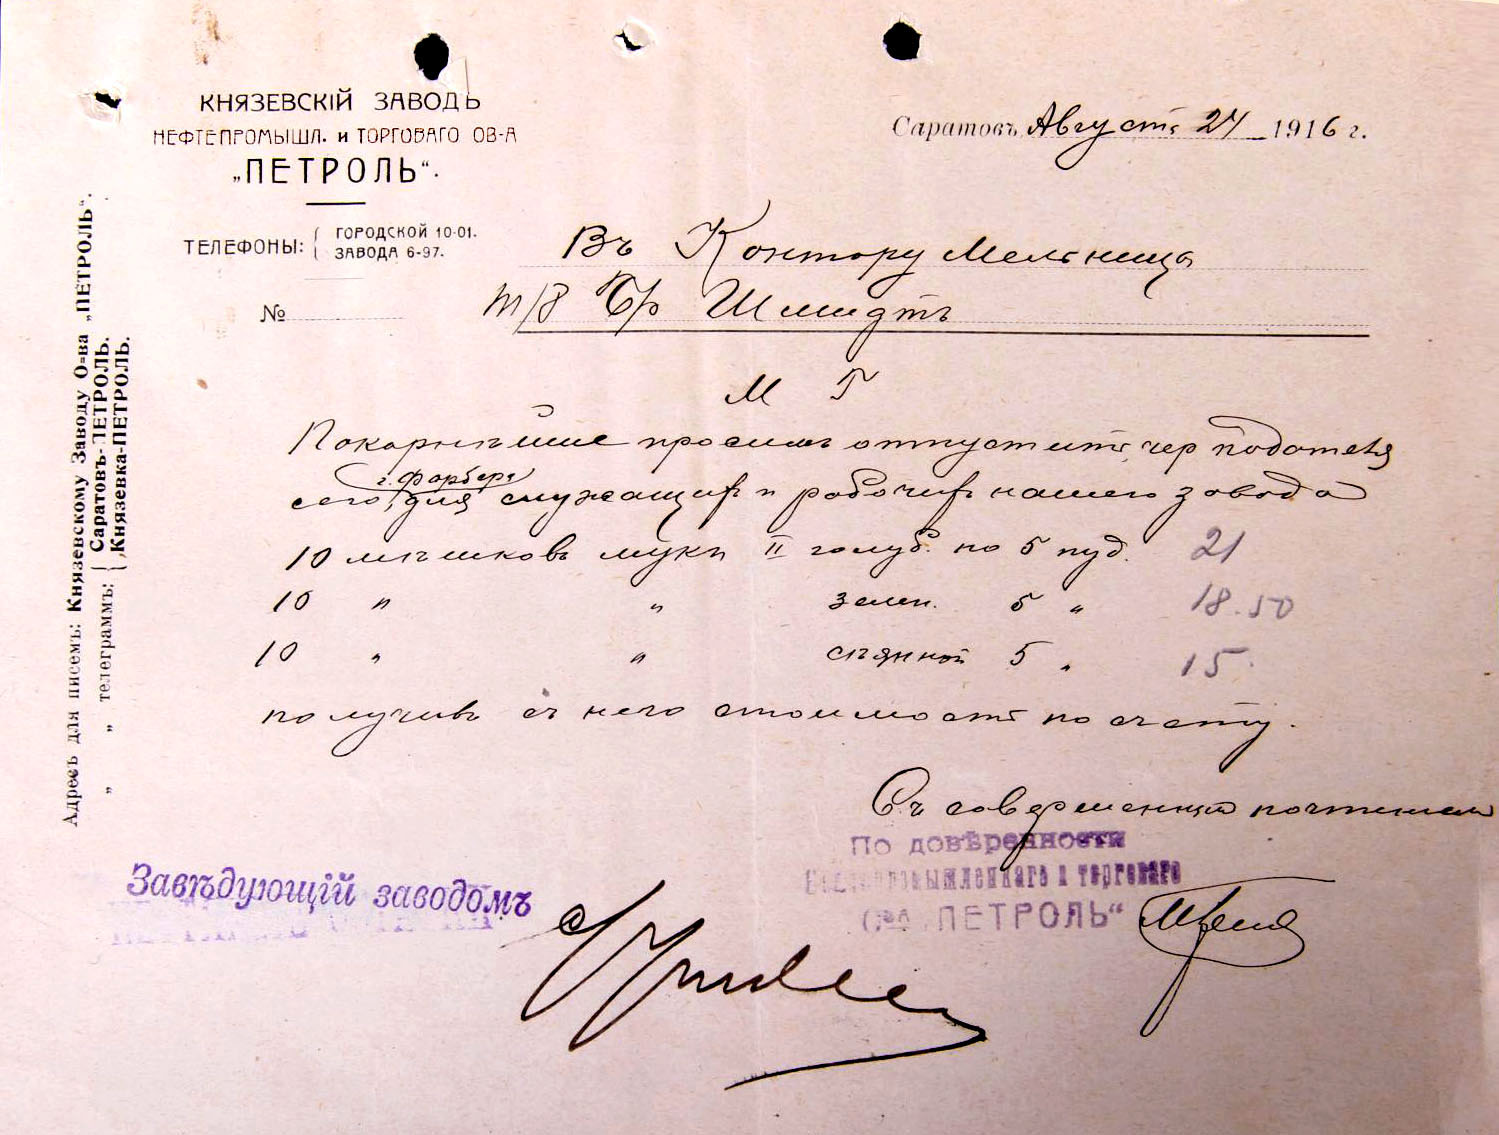 КНЯЗЕВСКІЙ ЗАВОДЪ
НЕФТЕПРОМЫШЛ. и ТОРГОВАГО ОБ-А
„ПЕТРОЛЬ“.
ТЕЛЕФОНЫ: ГОРОДСКОЙ 10-01.
ЗАВОДА 6-97.
№
Саратовъ, Августъ 24 1916 г.
Въ Контору Мельницы
Т/Д Бр Шмидтъ
М Г
Покорнѣйше просимъ отпустить чер подателя
г. Фарбера
сего, для служащих и рабочих нашего завода
10 мѣшковъ муки II голуб. по 5 пуд. 21
10 „ „ зелен. 5 „ 18.50
10 „ „ 5 „ 15.
получив съ него стоимость по счету.
Съ совершенным почтением
По довѣренности
Нефтепромышленнаго и торговаго
О-ва „ПЕТРОЛЬ“
Завѣдующій заводомъ
Адресъ для писемъ: Князевскому Заводу О-ва „ПЕТРОЛЬ“.
„ „ телеграммъ: Саратовъ-ПЕТРОЛЬ.
Князевка-ПЕТРОЛЬ.